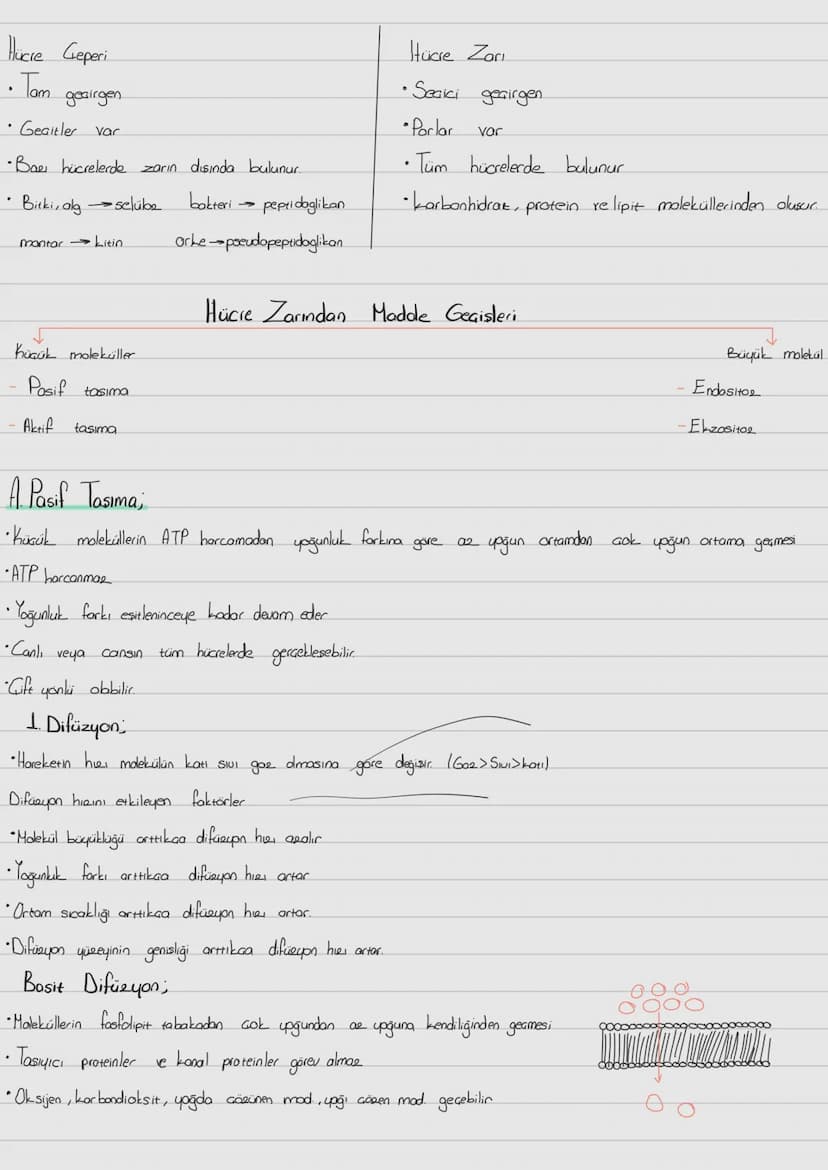 Hücre Çeperi
• Tam geçirgen
• Geçitler var
• Bazı hücrelerde zarın dışında bulunur.
• Bitki, alg → selüboz bakteri → peptidoglikan
mantar → kitin arke → pseudopeptidoglikan
Hücre Zarı
• Seçici geçirgen
• Porlar var
• Tüm hücrelerde bulunur
• karbonhidrat, protein ve lipit moleküllerinden oluşur.
Hücre Zarından Madde Geçişleri
Küçük moleküller
- Pasif taşıma
- Aktif taşıma
Büyük molekül
- Endositoz
- Ekzositoz
A. Pasif Taşıma;
• Küçük moleküllerin ATP harcamadan yoğunluk farkına göre az yoğun ortamdan çok yoğun ortama geçmesi
• ATP harcanmaz
• Yoğunluk farkı eşitleninceye kadar devam eder
• Canlı veya cansın tüm hücrelerde gerçekleşebilir.
• Çift yönlü olabilir.
1. Difüzyon;
• Hareketin hızı molekülün katı sıvı gaz olmasına göre değişir. (Gaz>Sıvı>katı)
Difüzyon hızını etkileyen faktörler
• Molekül büyüklüğü arttıkça difüzyon hızı azalır
• Yoğunluk farkı arttıkça difüzyon hızı artar
• Ortam sıcaklığı arttıkça difüzyon hızı artar.
• Difüzyon yüzeyinin genişliği arttıkça difüzyon hızı artar.
Basit Difüzyon;
• Moleküllerin fosfolipit tabakadan çok yoğundan az yoğuna kendiliğinden geçmesi
• Taşıyıcı proteinler ve kanal proteinler görev almaz
• Oksijen, karbondioksit, yağda çözünen mad., yağı çözen mad. geçebilir